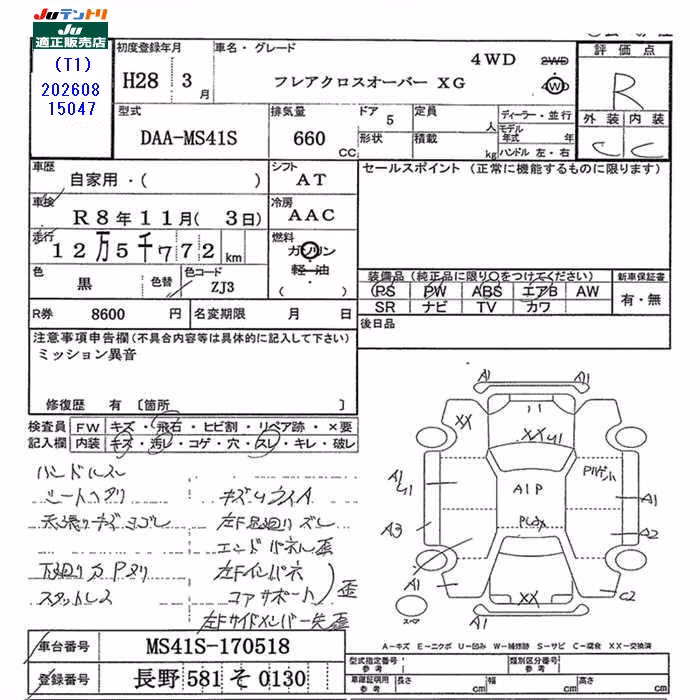 JUテントリ
JU
適正販売店
(T1)
202608
15047
初度登録年月
H28 3月
車名・グレード
4WD 2WD
フレアクロスオーバー XG 4WD
評価点
R
外装 内装
C C
型式
DAA-MS41S
排気量
660 CC
ドア 5
形状
定員 人
積載 kg
ディーラー・並行
モデル年式 年
ハンドル 左・右
車歴
自家用・( )
シフト
AT
セールスポイント (正常に機能するものに限ります)
車検
R8年11月( 3日)
冷房
AAC
走行
12万5千772km
燃料
ガソリン
軽油
( )
色
黒
色替
色コード
ZJ3
装備品 (純正品に限り○をつけてください)
PS PW ABS エアB AW
SR ナビ TV カワ
新車保証書
有・無
R券 8600 円
名変期限 月 日
後日品
注意事項申告欄(不具合内容等は具体的に記入して下さい)
ミッション異音
修復歴 有 〔箇所 〕
検査員 FW キズ・飛石・ヒビ割・リペア跡・×要
記入欄 内装 キズ・汚レ・コゲ・穴・スレ・キレ・破レ
ハンドルスレ
シートヘタリ
キズUライA
天張りキズヨゴレ
左F足廻りズレ
エンドパネル歪
下廻りカPヌリ
左Fインパネ
スタットレス
コアサポート 歪
左Fサイドメンバー先歪
A1 A1
XX
XXU1
A1
U1
A1P
A1
A3
A2
A1
XX
C2
スペア
A1
A-キズ E-エクボ U-凹み W-補修跡 S-サビ C-腐食 XX-交換済
車台番号 MS41S-170518
登録番号 長野 581 そ 0130
型式指定番号 参考
類別区分番号 参考
車庫証明用 参考
長さ cm
幅 cm
高さ cm